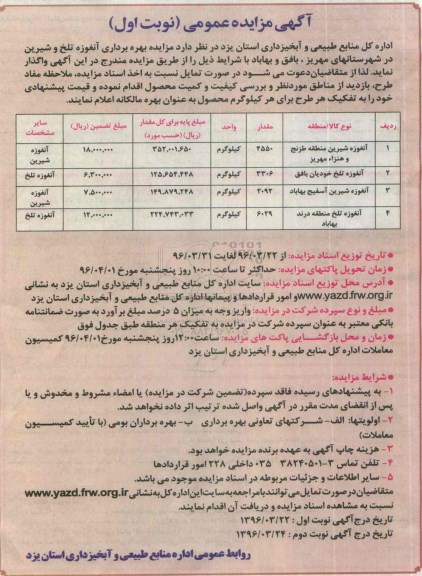 آگهی مزایده عمومی (نوبت اول)
اداره کل منابع طبیعی و آبخیزداری استان یزد در نظر دارد مزایده بهره برداری آنغوزه تلخ و شیرین
در شهرستانهای مهریز ، بافق و بهاباد با شرایط ذیل را از طریق مزایده مندرج در این آگهی واگذار
نماید. لذا از متقاضیان دعوت می شود در صورت تمایل نسبت به اخذ اسناد مزایده، ملاحظه مفاد
طرح، بازدید از مناطق موردنظر و بررسی کیفیت و کمیت محصول اقدام نموده و قیمت پیشنهادی
خود را به تفکیک هر طرح برای هر کیلوگرم محصول به عنوان بهره مالکانه اعلام نمایند.
ردیف نوع کالا/منطقه مقدار واحد مبلغ پایه برای کل مقدار (ریال) (حسب مورد) مبلغ تضمین (ریال) سایر مشخصات
۱ آنغوزه شیرین منطقه طزنج و هنزاء مهریز ۴۵۵۰ کیلوگرم ۳۵۲،۰۰۱،۶۵۰ ۱۸،۰۰۰،۰۰۰ آنغوزه شیرین
۲ آنغوزه تلخ خودیان بافق ۳۳۰۶ کیلوگرم ۱۲۵،۶۵۴،۴۴۸ ۶،۳۰۰،۰۰۰ آنغوزه تلخ
۳ آنغوزه شیرین آسفیچ بهاباد ۲۰۹۲ کیلوگرم ۱۴۹،۸۷۹،۲۴۸ ۷،۵۰۰،۰۰۰ آنغوزه شیرین
۴ آنغوزه تلخ منطقه درند بهاباد ۶۰۲۹ کیلوگرم ۲۲۴,۷۴۳,۰۳۳ ۱۲،۰۰۰،۰۰۰ آنغوزه تلخ
● تاریخ توزیع اسناد مزایده: از ۹۶/۰۳/۲۲ لغایت ۹۶/۰۳/۳۱
● زمان تحویل پاکتهای مزایده: حداکثر تا ساعت ۱۰:۰۰ روز پنجشنبه مورخ ۹۶/۰۴/۰۱
● آدرس محل توزیع اسناد مزایده: سایت اداره کل منابع طبیعی و آبخیزداری استان یزد به نشانی
www.yazd.frw.org.ir و امور قراردادها و پیمانها اداره کل منابع طبیعی و آبخیزداری استان یزد
● مبلغ و نوع سپرده شرکت در مزایده: واریز وجه به میزان ۵ درصد مبلغ برآورد به صورت ضمانتنامه
بانکی معتبر به عنوان سپرده شرکت در مزایده به تفکیک هر منطقه طبق جدول فوق
● زمان و محل بازگشایی پاکت های مزایده: ساعت ۱۲:۰۰ روز پنجشنبه مورخ ۹۶/۰۴/۰۱ کمیسیون
معاملات اداره کل منابع طبیعی و آبخیزداری استان یزد
● شرایط مزایده:
۱- به پیشنهادهای رسیده فاقد سپرده (تضمین شرکت در مزایده) یا امضاء مشروط و مخدوش و یا
پس از انقضای مدت مقرر در آگهی واصل شده ترتیب اثر داده نخواهد شد.
۲- اولویتها: الف- شرکتهای تعاونی بهره برداری ب- بهره برداران بومی (با تأیید کمیسیون
معاملات)
۳- هزینه چاپ آگهی به عهده برنده مزایده خواهد بود.
۴- تلفن تماس ۳-۳۸۲۴۰۵۰۱ ۰۳۵ داخلی ۲۲۸ امور قراردادها
۵- سایر اطلاعات و جزئیات مربوطه در اسناد مزایده موجود می باشد.
متقاضیان در صورت تمایل می توانند با مراجعه به سایت این اداره کل به نشانی www.yazd.frw.org.ir
نسبت به مشاهده اسناد مزایده و دریافت آن اقدام نمایند.
تاریخ درج آگهی نوبت اول : ۱۳۹۶/۰۳/۲۲
تاریخ درج آگهی نوبت دوم : ۱۳۹۶/۰۳/۲۴
روابط عمومی اداره منابع طبیعی و آبخیزداری استان یزد